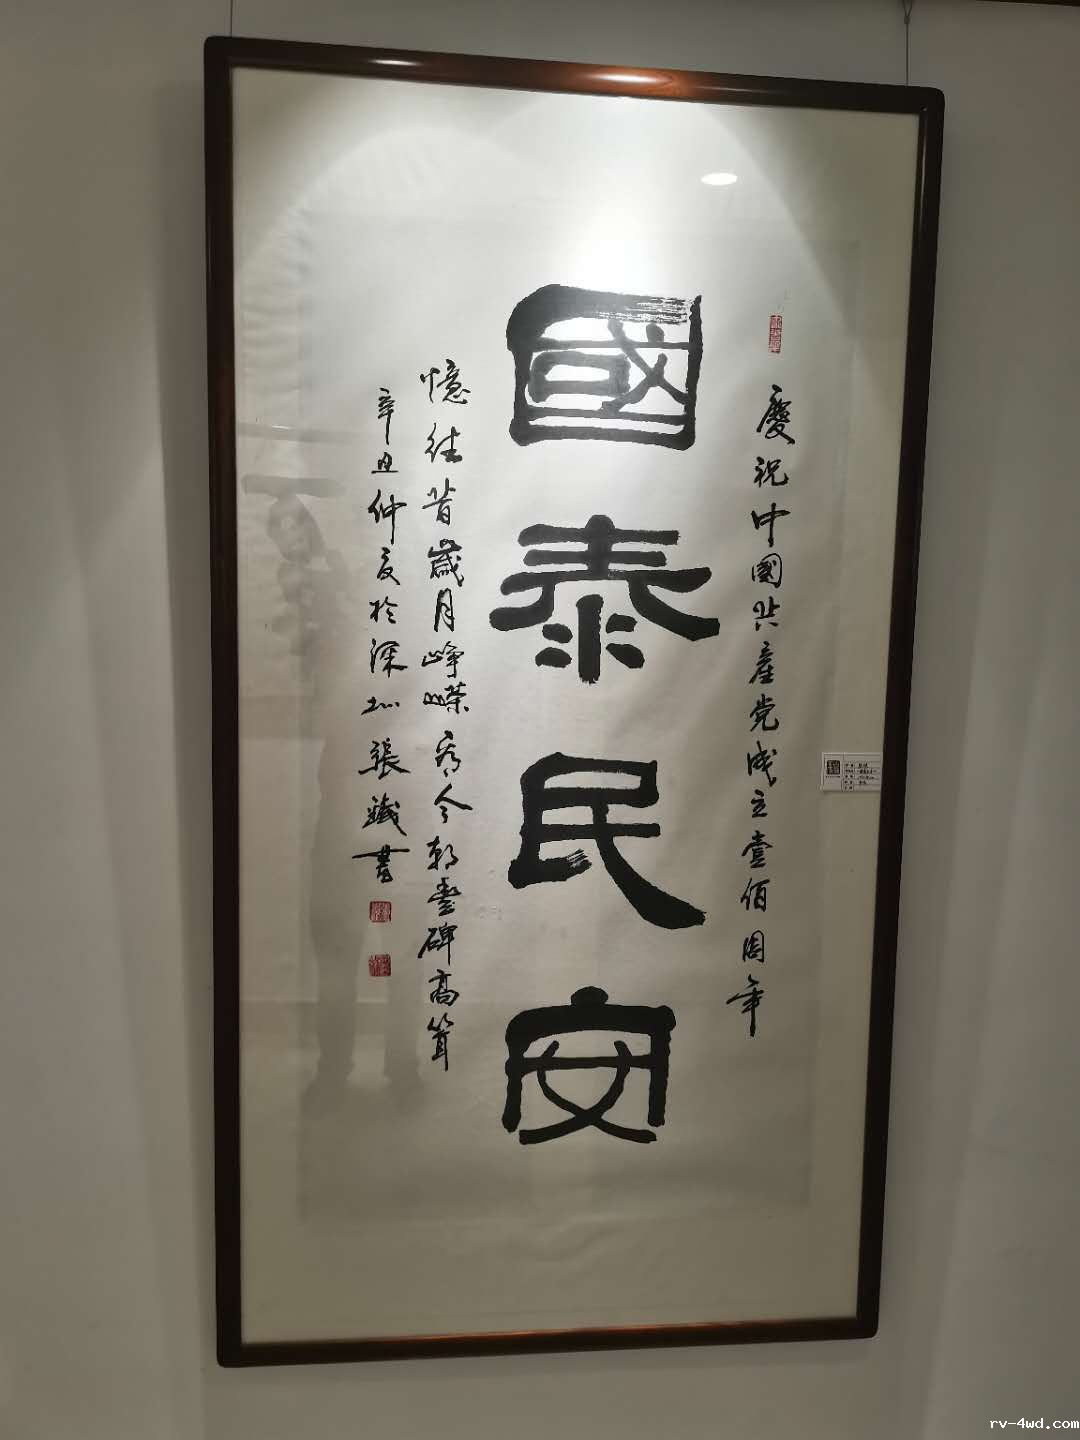 慶祝中國共產党成立壹佰周年
國泰民安
憶往昔歲月崢嶸看今朝豐碑高聳
辛丑仲夏於深圳張鐵書
rv-4wd.com